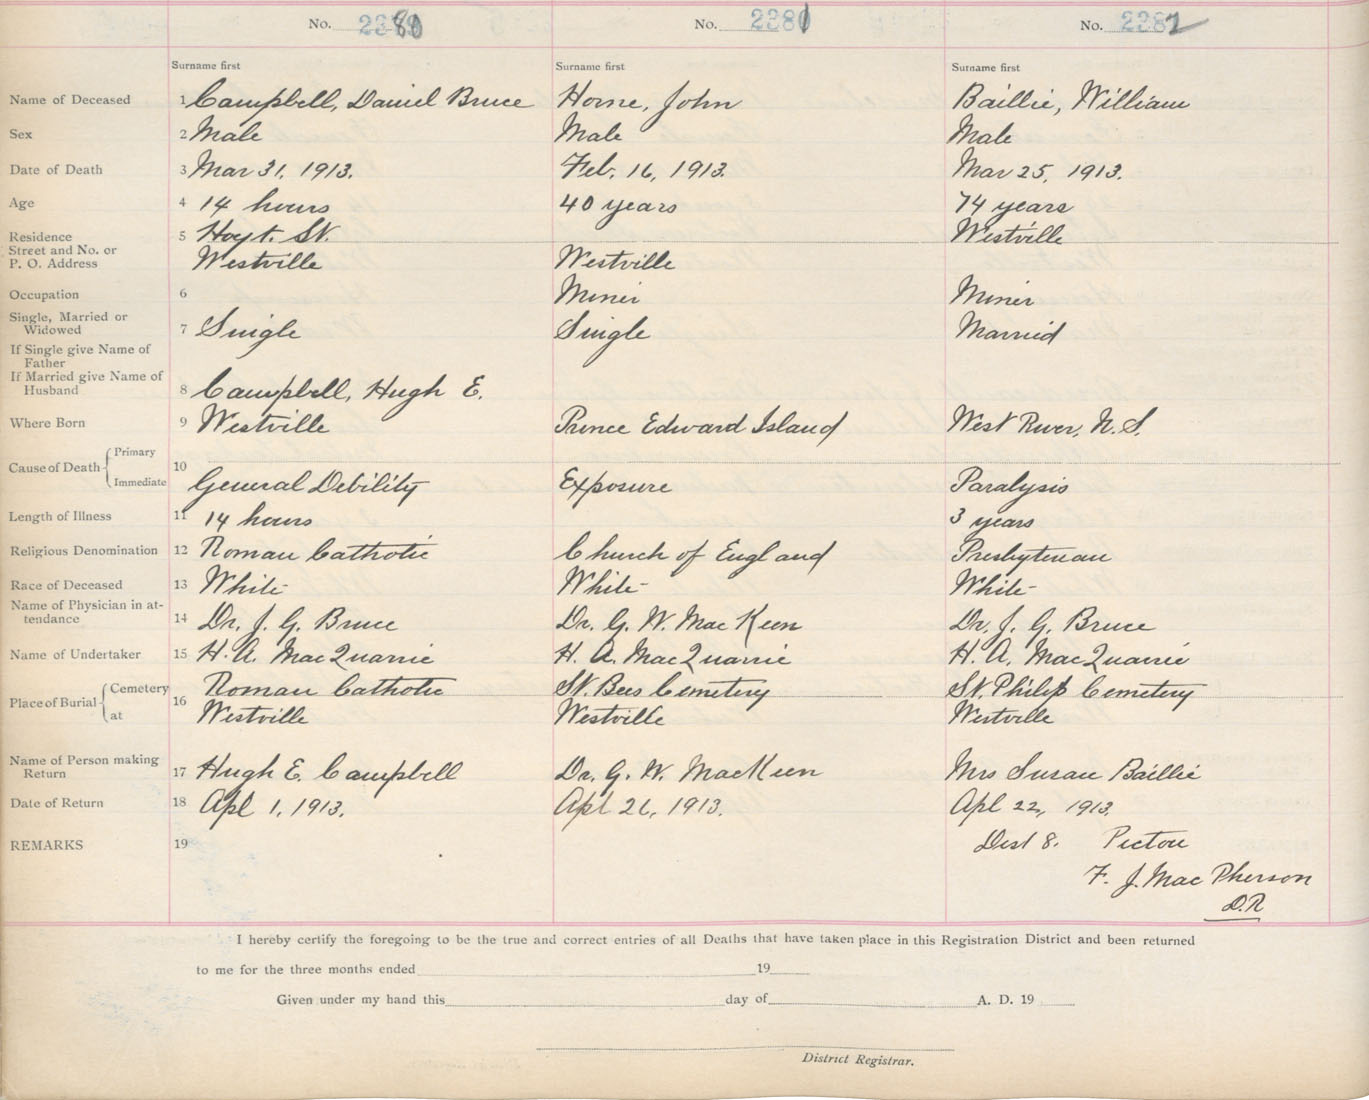 No. 2380 No. 2381 No. 2382
Surname first Surname first Surname first
Name of Deceased 1 Campbell, Daniel Bruce Horne, John Baillie, William
Sex 2 Male Male Male
Date of Death 3 Mar 31, 1913. Feb. 16, 1913. Mar 25, 1913.
Age 4 14 hours 40 years 74 years
Residence 5 Hoyt. St. Westville
Street and No. or
P. O. Address Westville Westville
Occupation 6 Miner Miner
Single, Married or
Widowed 7 Single Single Married
If Single give Name of
Father
If Married give Name of
Husband 8 Campbell, Hugh E.
Where Born 9 Westville Prince Edward Island West River, N. S.
Cause of Death Primary 10
Immediate General Debility Exposure Paralysis
Length of Illness 11 14 hours 3 years
Religious Denomination 12 Roman Catholic Church of England Presbyterian
Race of Deceased 13 White White White
Name of Physician in at-
tendance 14 Dr. J. G. Bruce Dr. G. W. MacKeen Dr. J. G. Bruce
Name of Undertaker 15 H. A. MacQuarrie H. A. MacQuarrie H. A. MacQuarrie
Place of Burial Cemetery 16 Roman Catholic St. Bees Cemetery St. Philips Cemetery
at Westville Westville Westville
Name of Person making
Return 17 Hugh E. Campbell Dr. G. W. MacKeen Mrs Susan Baillie
Date of Return 18 Apl 1, 1913. Apl 26, 1913. Apl 22, 1913.
REMARKS 19 Dist 8. Pictou
F. J. MacPherson
D.R
I hereby certify the foregoing to be the true and correct entries of all Deaths that have taken place in this Registration District and been returned
to me for the three months ended 19
Given under my hand this day of A. D. 19
District Registrar.